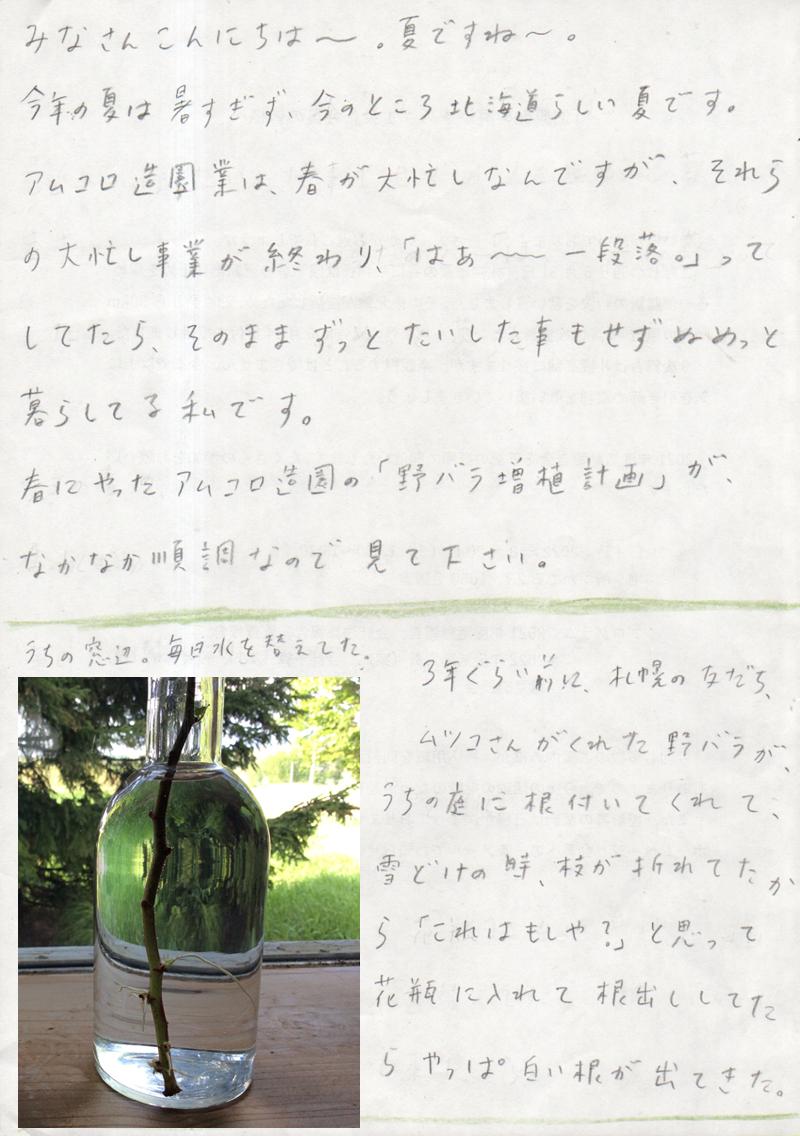 みなさんこんにちは〜。夏ですね〜。
今年の夏は暑すぎず、今のところ北海道らしい夏です。
アムコロ造園業は、春が大忙しなんですが、それら
の大忙し事業が終わり、「はぁ〜〜一段落。」って
してたら、そのままずっとたいした事もせずぬめっと
暮らしてる私です。
春にやったアムコロ造園の「野バラ増植計画」が、
なかなか順調なので見て下さい。
うちの窓辺。毎日水を替えてた。
3年ぐらい前に、札幌の友だち、
ムツコさんがくれた野バラが、
うちの庭に根付いてくれて、
雪どけの時、枝が折れてたか
ら「これはもしや?」と思って
花瓶に入れて根出ししてた
らやっぱ白い根が出てきた。